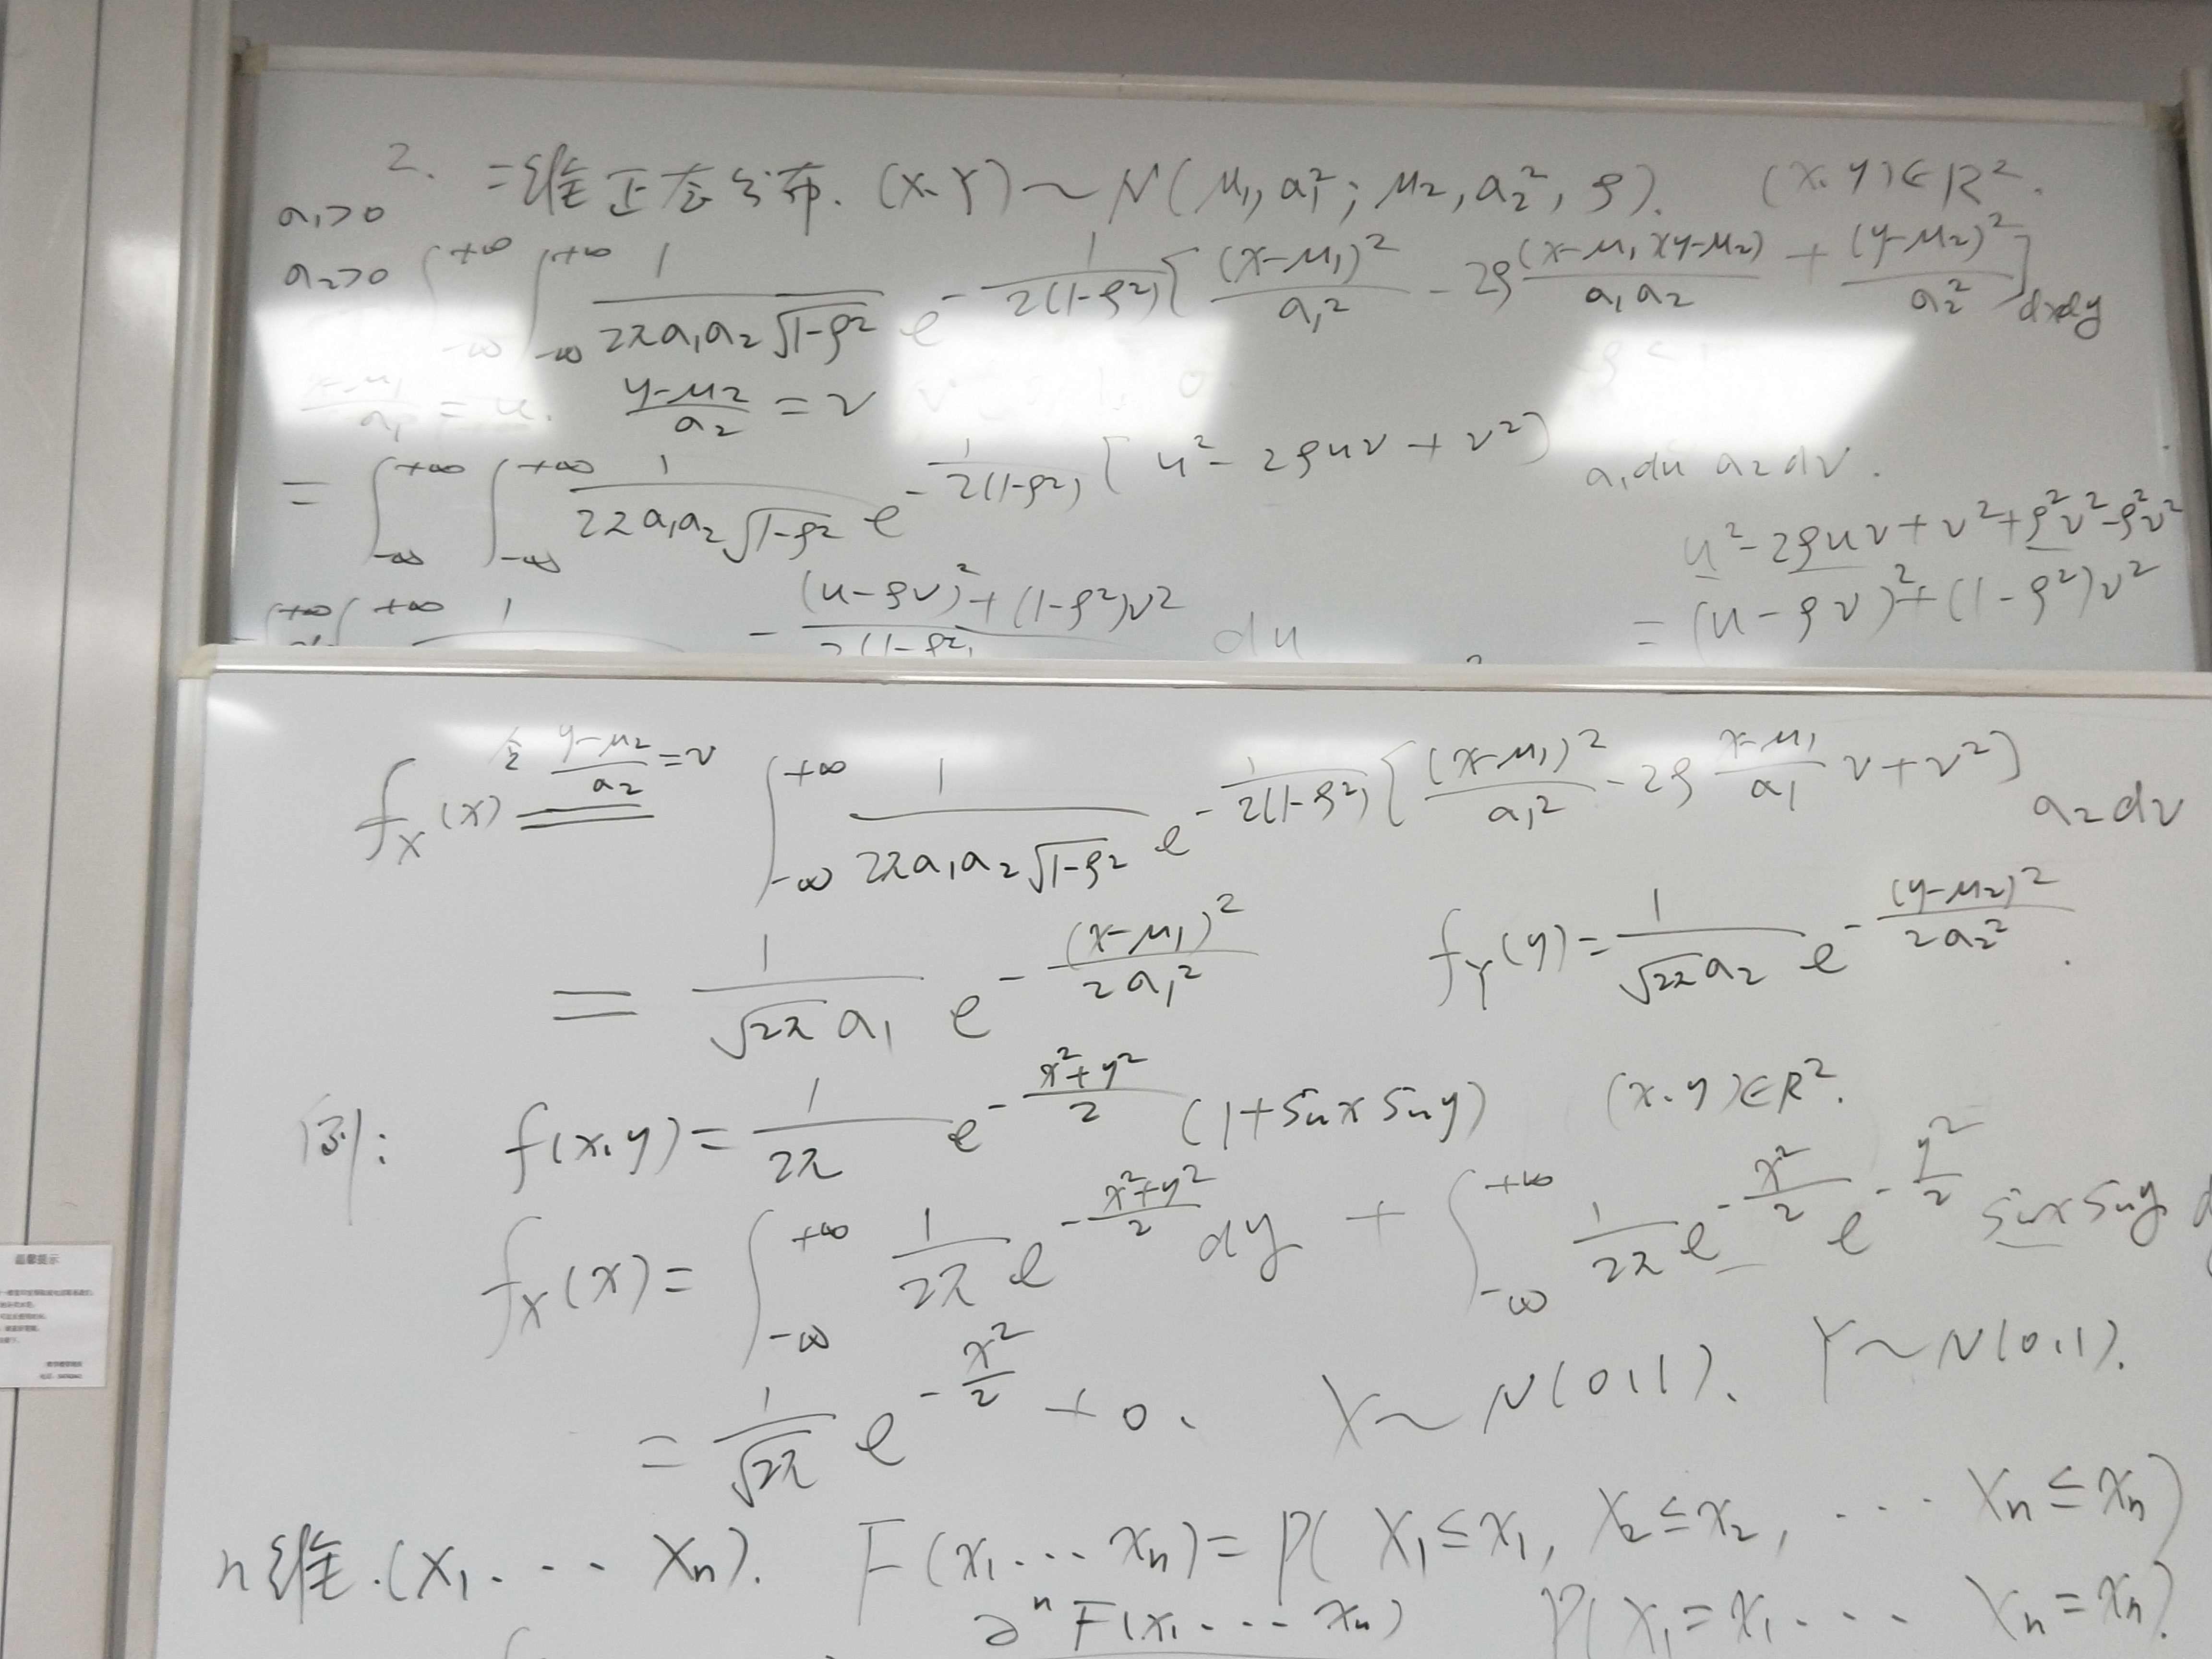 2. 二维正态分布. (X.Y) ~ N(μ₁, a₁²; μ₂, a₂², ρ). (x.y)∈R².
a₁>0
a₂>0 ∫_{-∞}^{+∞} ∫_{-∞}^{+∞} 1/(2πa₁a₂√(1-ρ²)) e^{-1/(2(1-ρ²)) [(x-μ₁)²/a₁² - 2ρ(x-μ₁)(y-μ₂)/(a₁a₂) + (y-μ₂)²/a₂²]} dxdy
(x-μ₁)/a₁ = u. (y-μ₂)/a₂ = v
= ∫_{-∞}^{+∞} ∫_{-∞}^{+∞} 1/(2πa₁a₂√(1-ρ²)) e^{-1/(2(1-ρ²)) [u² - 2ρuv + v²)} a₁du a₂dv.
u² - 2ρuv + v² + ρ²v² - ρ²v²
= (u - ρv)² + (1-ρ²)v²
∫^{+∞} ∫^{+∞} 1 - ((u-ρv)² + (1-ρ²)v²)/(2(1-ρ²) du
f_X(x) 令 (y-μ₂)/a₂ = v == ∫_{-∞}^{+∞} 1/(2πa₁a₂√(1-ρ²)) e^{-1/(2(1-ρ²)) [(x-μ₁)²/a₁² - 2ρ (x-μ₁)/a₁ v + v²)} a₂dv
= 1/(√(2π) a₁) e^{-(x-μ₁)²/(2a₁²)} f_Y(y) = 1/(√(2π) a₂) e^{-(y-μ₂)²/(2a₂²)}.
例: f(x.y) = 1/(2π) e^{-(x²+y²)/2} (1+sinx siny) (x.y)∈R².
f_X(x) = ∫_{-∞}^{+∞} 1/(2π) e^{-(x²+y²)/2} dy + ∫_{-∞}^{+∞} 1/(2π) e^{-x²/2} e^{-y²/2} sinx siny d
= 1/√(2π) e^{-x²/2} + 0. X ~ N(0,1). Y ~ N(0,1).
n维.(X₁. ·· Xₙ). F(x₁. ·· xₙ) = P( X₁≤x₁, X₂≤x₂, ··· Xₙ≤xₙ)
∂ⁿF(x₁. ·· xₙ) P(X₁=x₁. ·· Xₙ=xₙ).
温馨提示